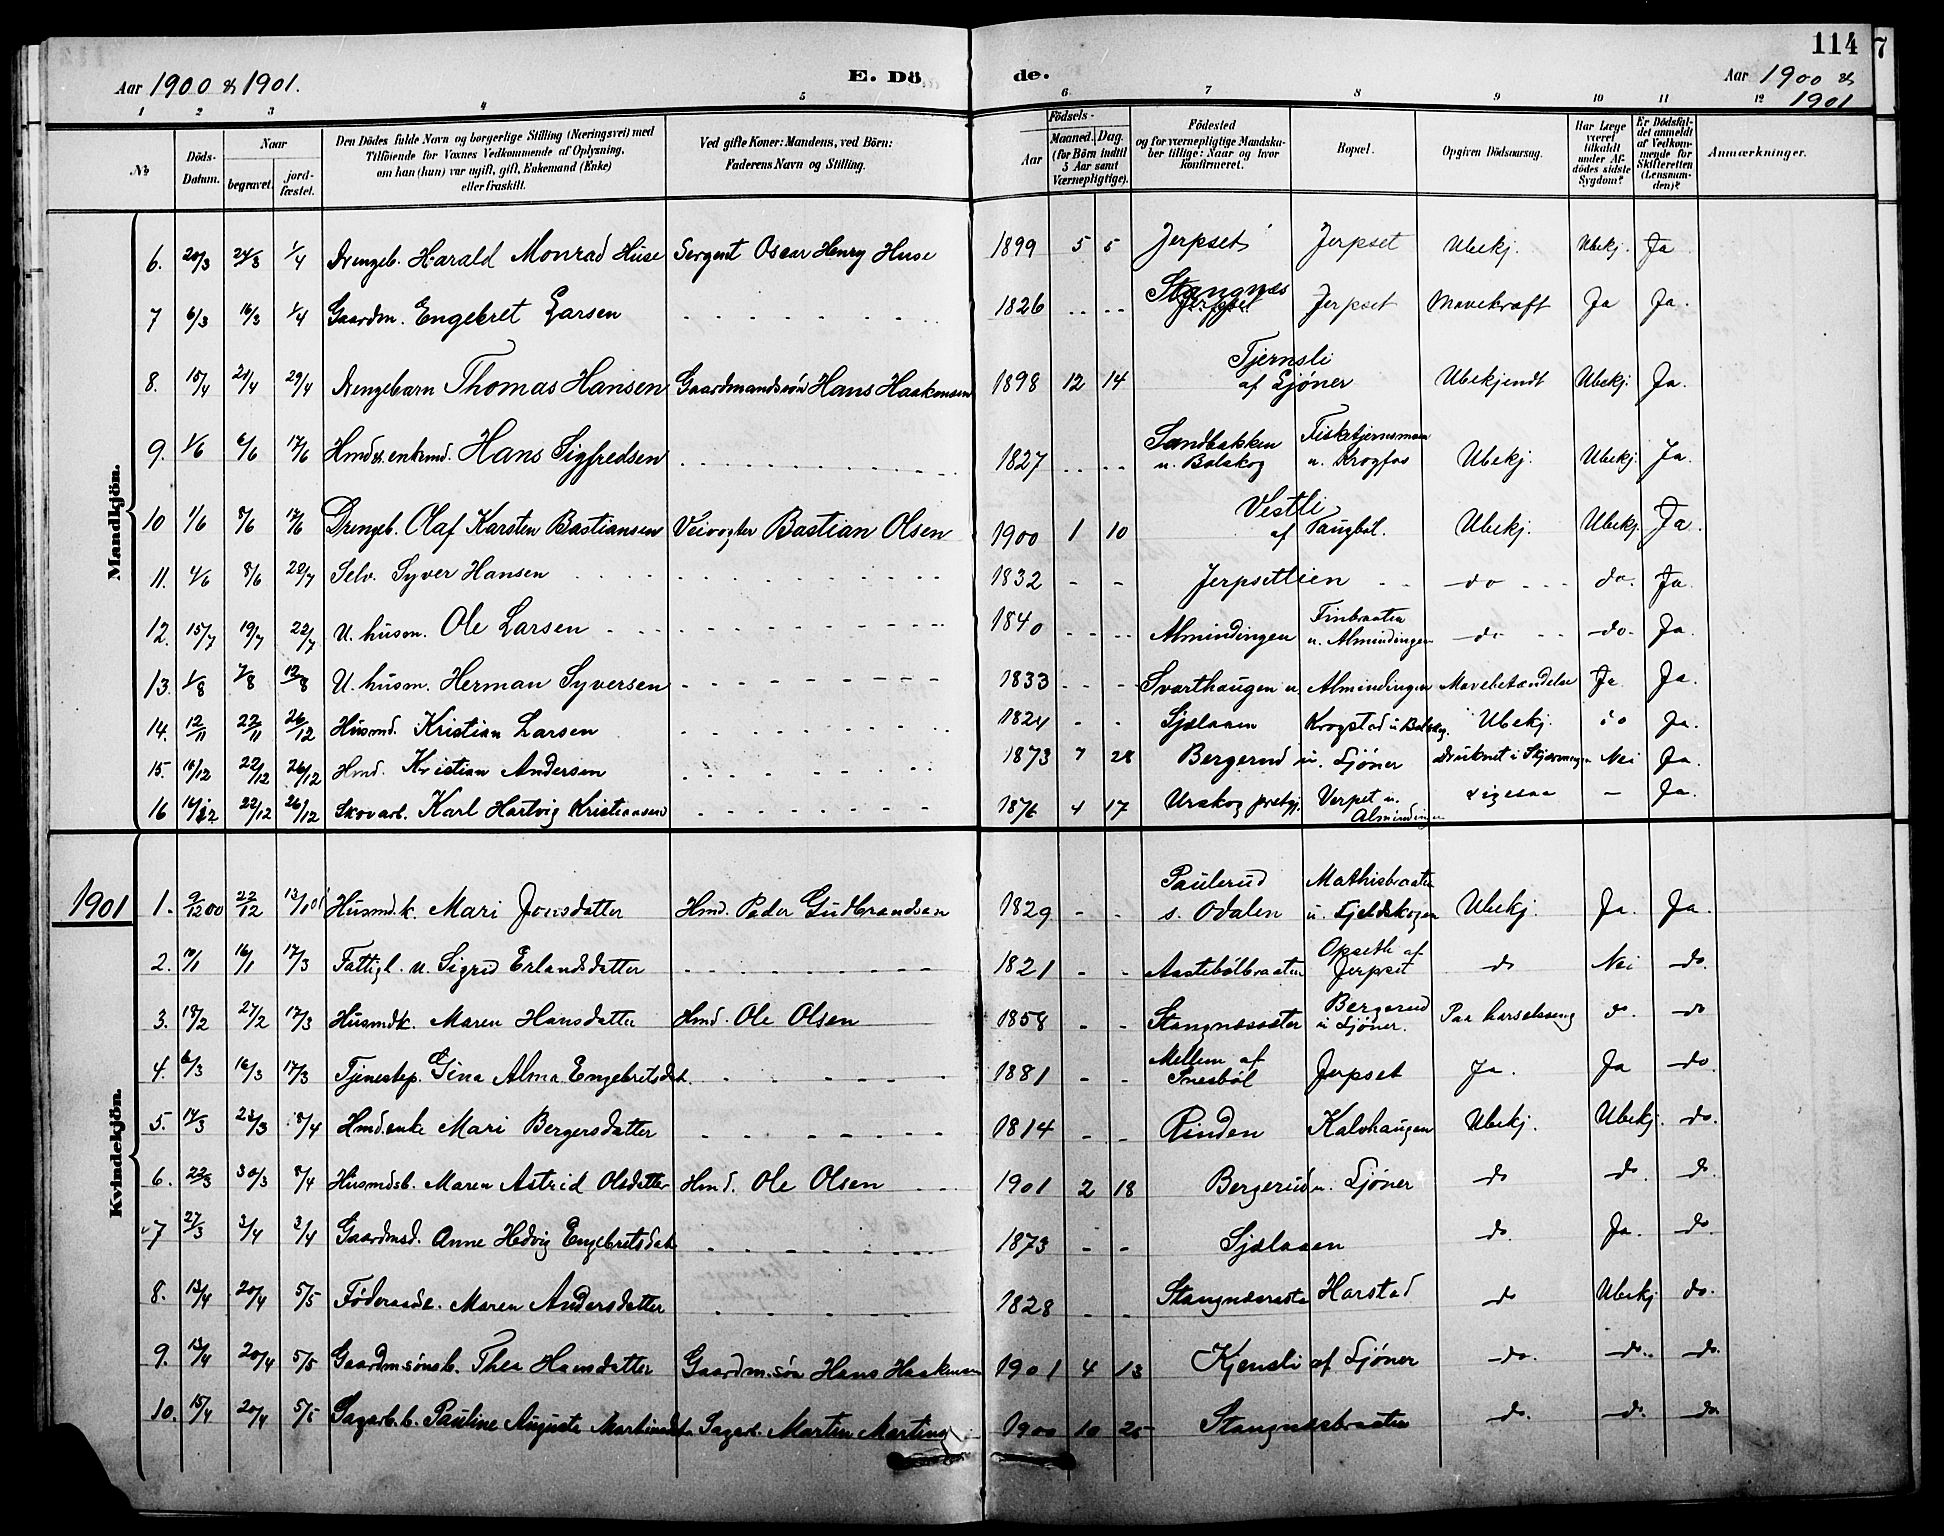 114
7
Aar 1900 & 1901.
E. Dö
de.
Aar 1900 &
1901
1 2 3 4 5 6 7 8 9 10 11 12
No
Döds-Datum.
Naar
begravet.
jord-fæstet.
Den Dödes fulde Navn og borgerlige Stilling (Næringsvei) med
Tilföiende for Voxnes Vedkommende af Oplysning,
om han (hun) var ugift, gift, Enkemand (Enke)
eller fraskilt.
Ved gifte Koner: Mandens, ved Börn:
Faderens Navn og Stilling.
Födsels-
Aar
Maaned. Dag.
(for Börn indtil
5 Aar samt
Værnepligtige).
Födested
og for værnepligtige Mandska-
ber tillige: Naar og hvor
konfirmeret.
Bopæl.
Opgiven Dödsaarsag.
Har Læge
været
tilkaldt
under Af-
dödes sidste
Sygdom?
Er Dödsfal-
det anmeldt
af Vedkom-
mende for
Skifteretten
(Lensman-
den)?
Anmærkninger.
Mandkjön.
6. 20/3 24/3 1/4 Drengeb. Harald Monrad Huse Sergent Oscar Henry Huse 1899 5 5 Jerpset Jerpset Ubekj. Ubekj. Ja
7 6/3 16/3 1/4 Gaardm. Engebret Larsen 1826 Stangnæs Jerpset Mavekræft Ja Ja.
8. 15/4 21/4 29/4 Drengebarn Thomas Hansen Gaardmandssøn Hans Haakensen 1898 12 14 Tjernsli af Ljøner Ubekjendt Ubekj. Ja.
9. 1/6 6/6 17/6 Hans Sigfredsen 1827 Sandbakken u. Bolskog Fisketjernsmoen u. Krogfos Ubekj. Ubekj. Ja.
10 1/6 8/6 17/6 Drengeb. Olaf Karsten Bastiansen Veivogter Bastian Olsen 1900 1 10 Vestli af Taugbøl. Ubekj. Ubekj. Ja.
11. 4/6 8/6 29/7 Selv. Syver Hansen 1832 - - Jerpsetlien do do. Ja.
12. 15/7 19/7 22/7 U. husm. Ole Larsen 1840 Almindingen Finbraaten u. Almindingen do do. Ja.
13. 1/8 7/8 12/8 U. husm. Herman Syversen 1833 Svarthaugen u. Almindingen Mavebetændelse Ja Ja.
14. 12/11 22/11 26/12 Husmd. Kristian Larsen 1824 - - Sjølaaen Krogstad u Bolskog. Ubekj. do Ja.
15. 16/12 22/12 26/12 Hmd. Kristian Andersen 1873 7 28 Bergerud u. Ljøner Druknet i Skjærmingen Nei Ja.
16 16/12 22/12 26/12 Skovarb. Karl Hartvig Kristiansen 1876 4 17 Urskog prestgj. Verpet u. Almindingen Ligesaa - Ja.
1901
Kvindekjön.
1. 9/12 00 22/12 13/1 01 Husmdk. Mari Jonsdatter Hmd. Peder Gudbrandsen 1829 - - Paulerud s. Odalen Mathisbraaten u. Fjeldskogen Ubekj. Ja. Ja.
2. 10/1 16/1 17/3 Fattigl. u. Sigrid Erlandsdatter 1821 - - Aastebølbraaten Opseth af Jerpset do Nei do.
3. 18/2 27/2 17/3 Husmdk. Maren Hansdatter Hmd. Ole Olsen 1858 - - Stangnæssæter Bergerud u Ljøner. Paa barselseng do. do
4. 6/3 16/3 17/3 Tjenestep. Gina Alma Engebretsdat. 1881 - - Mellem af Snesbøl Jerpset Ja. Ja do.
5. 14/3 23/3 8/4 Hmd.enke Mari Bergersdatter 1814 - - Rinden Kalvhaugen Ubekj. Ubekj. do.
6. 22/3 30/3 8/4 Husmdsb. Maren Astrid Olsdatter Hmd. Ole Olsen 1901 2 18 Bergerud u. Ljøner do do. do.
7 27/3 3/4 3/4 Gaardmsd. Anne Hedvig Engebretsdat 1873 - - Sjølaaen do. Ja. do.
8. 13/4 20/4 5/5 Føderaads. Maren Andersdatter 1828 - - Stangnæssæter Harstad do Ubekj do.
9. 13/4 20/4 5/5 Gaardmsønsb. Thea Hansdatter Gaardm.søn Hans Haakensen 1901 4 13 Kjensli af Ljøner do. do. do.
10. 15/4 20/4 5/5 Sagarb.b. Pauline Auguste Martinsdt. Sagarb. Martin Martins 1900 10 25 Stangnæsbraaten do. do. do.